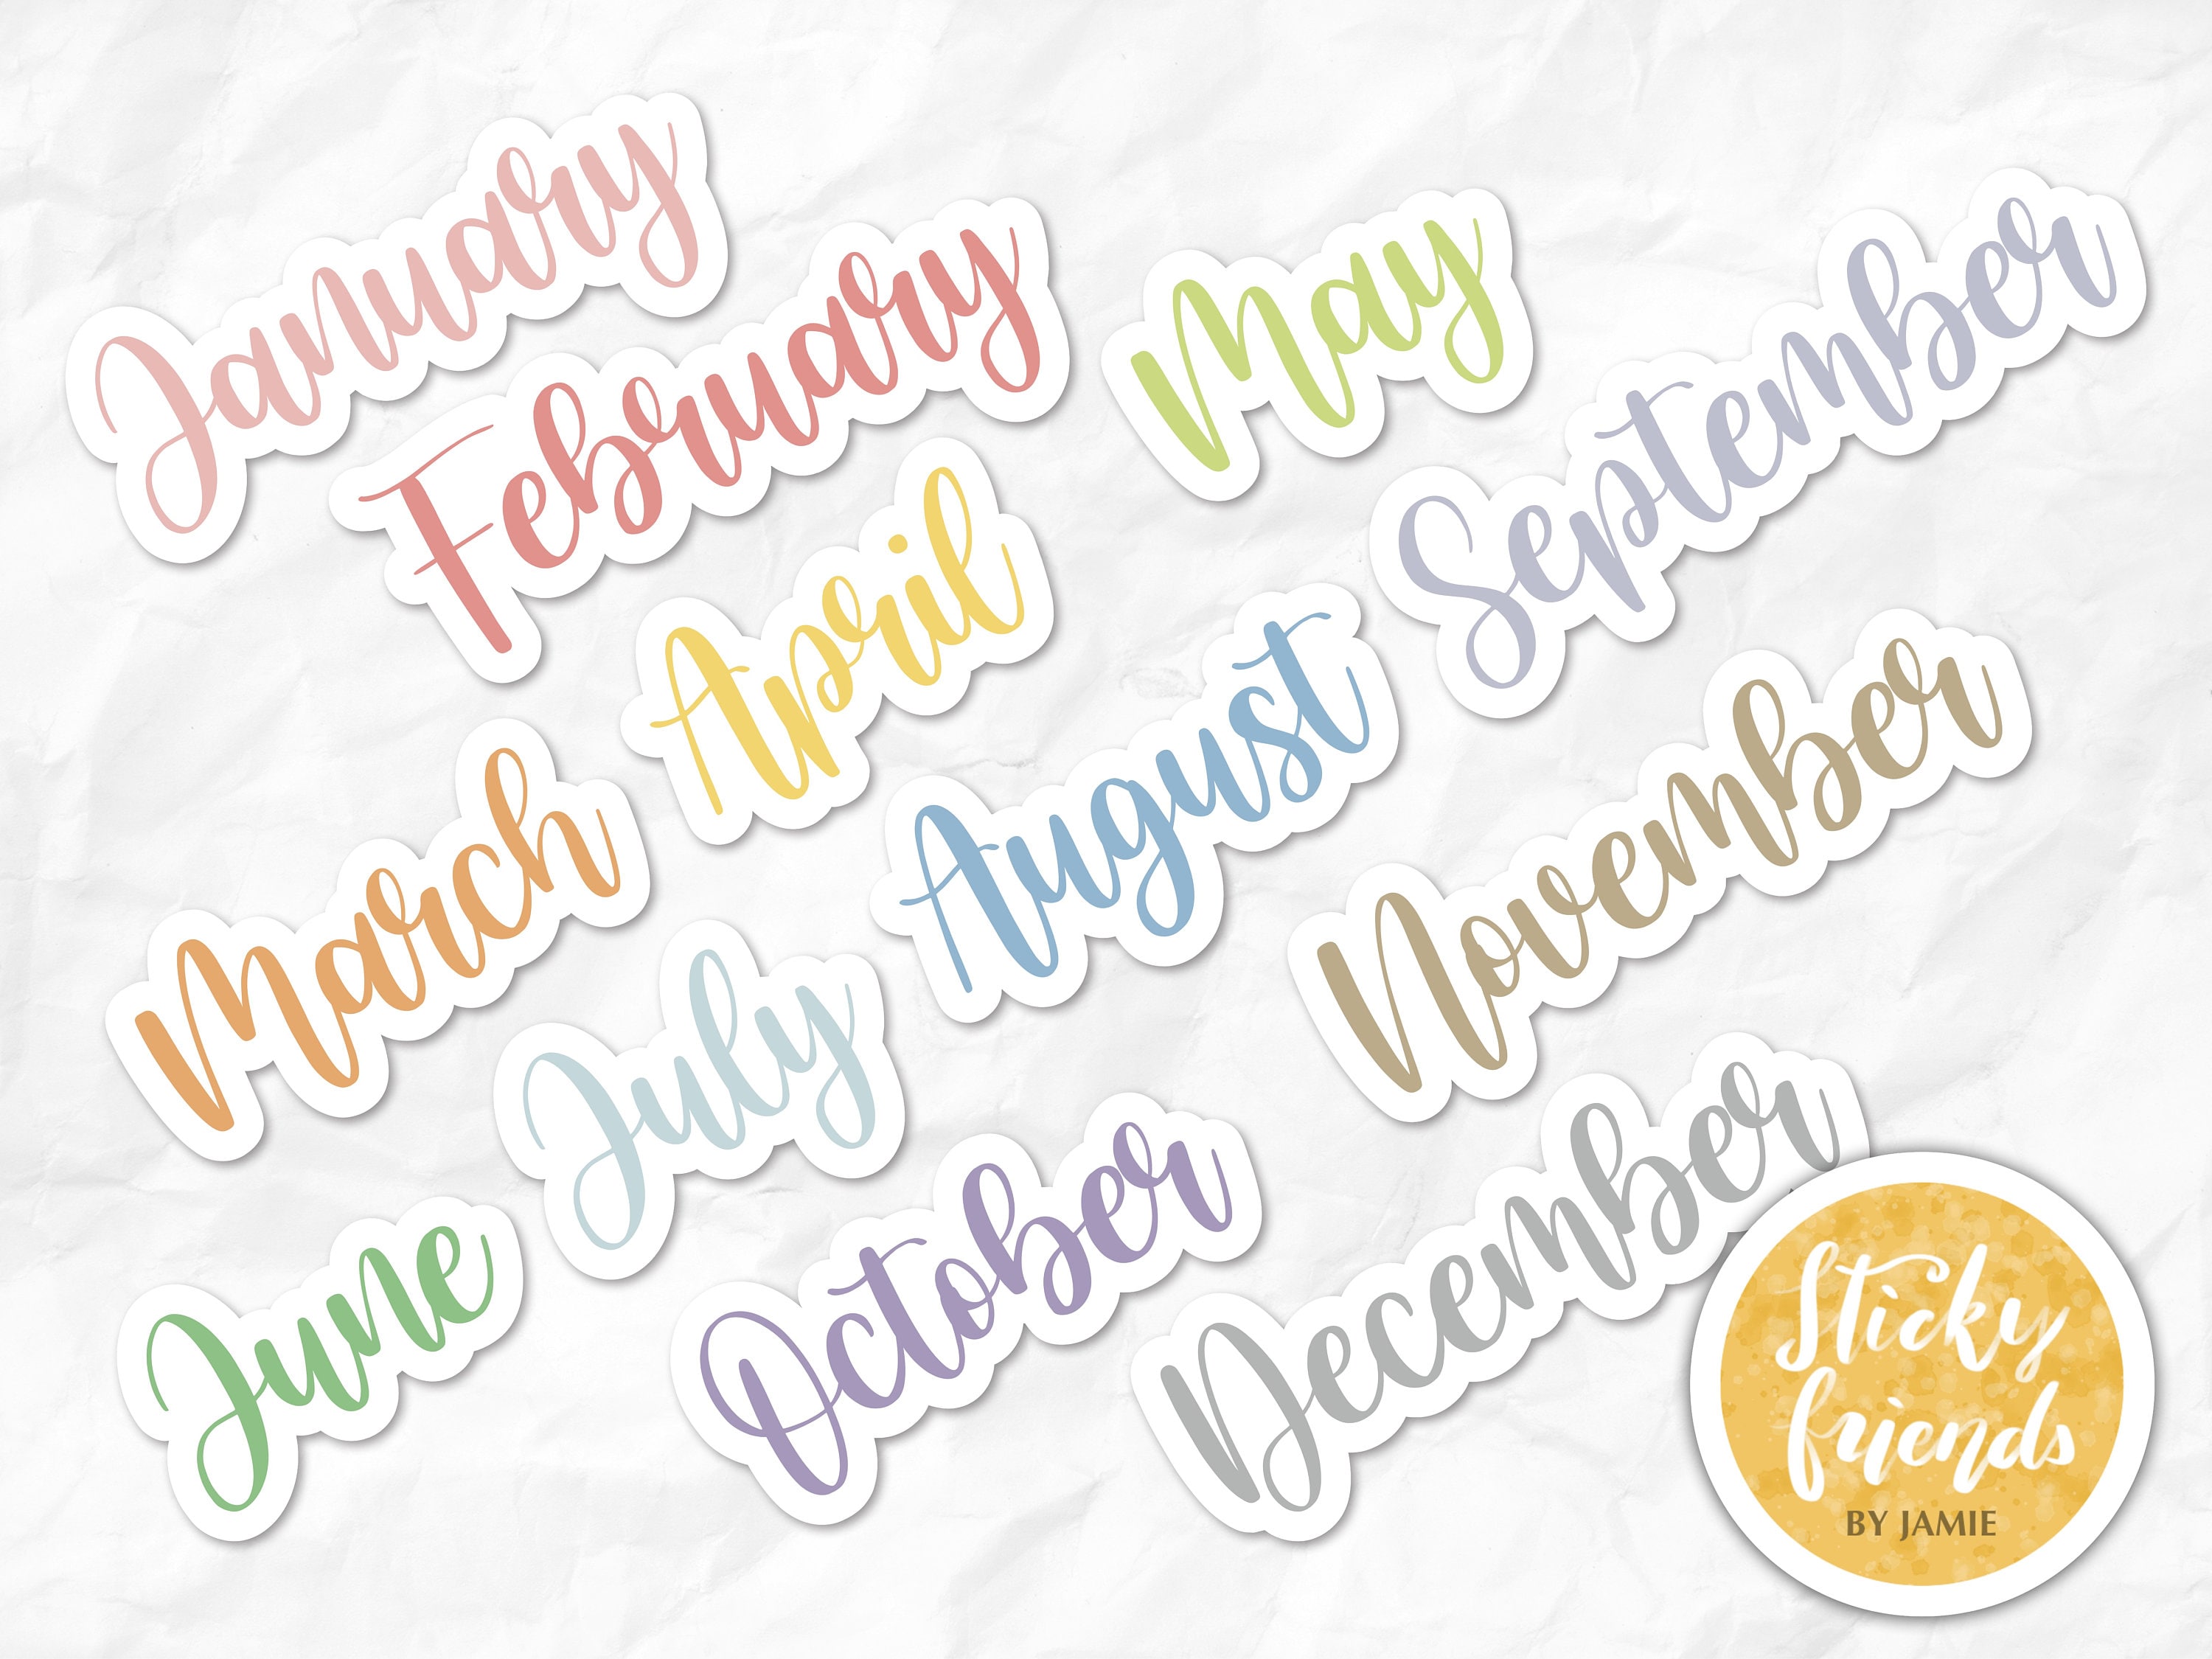 January
February
May
September
April
August
November
March
July
October
December
June
Sticky
friends
BY JAMIE